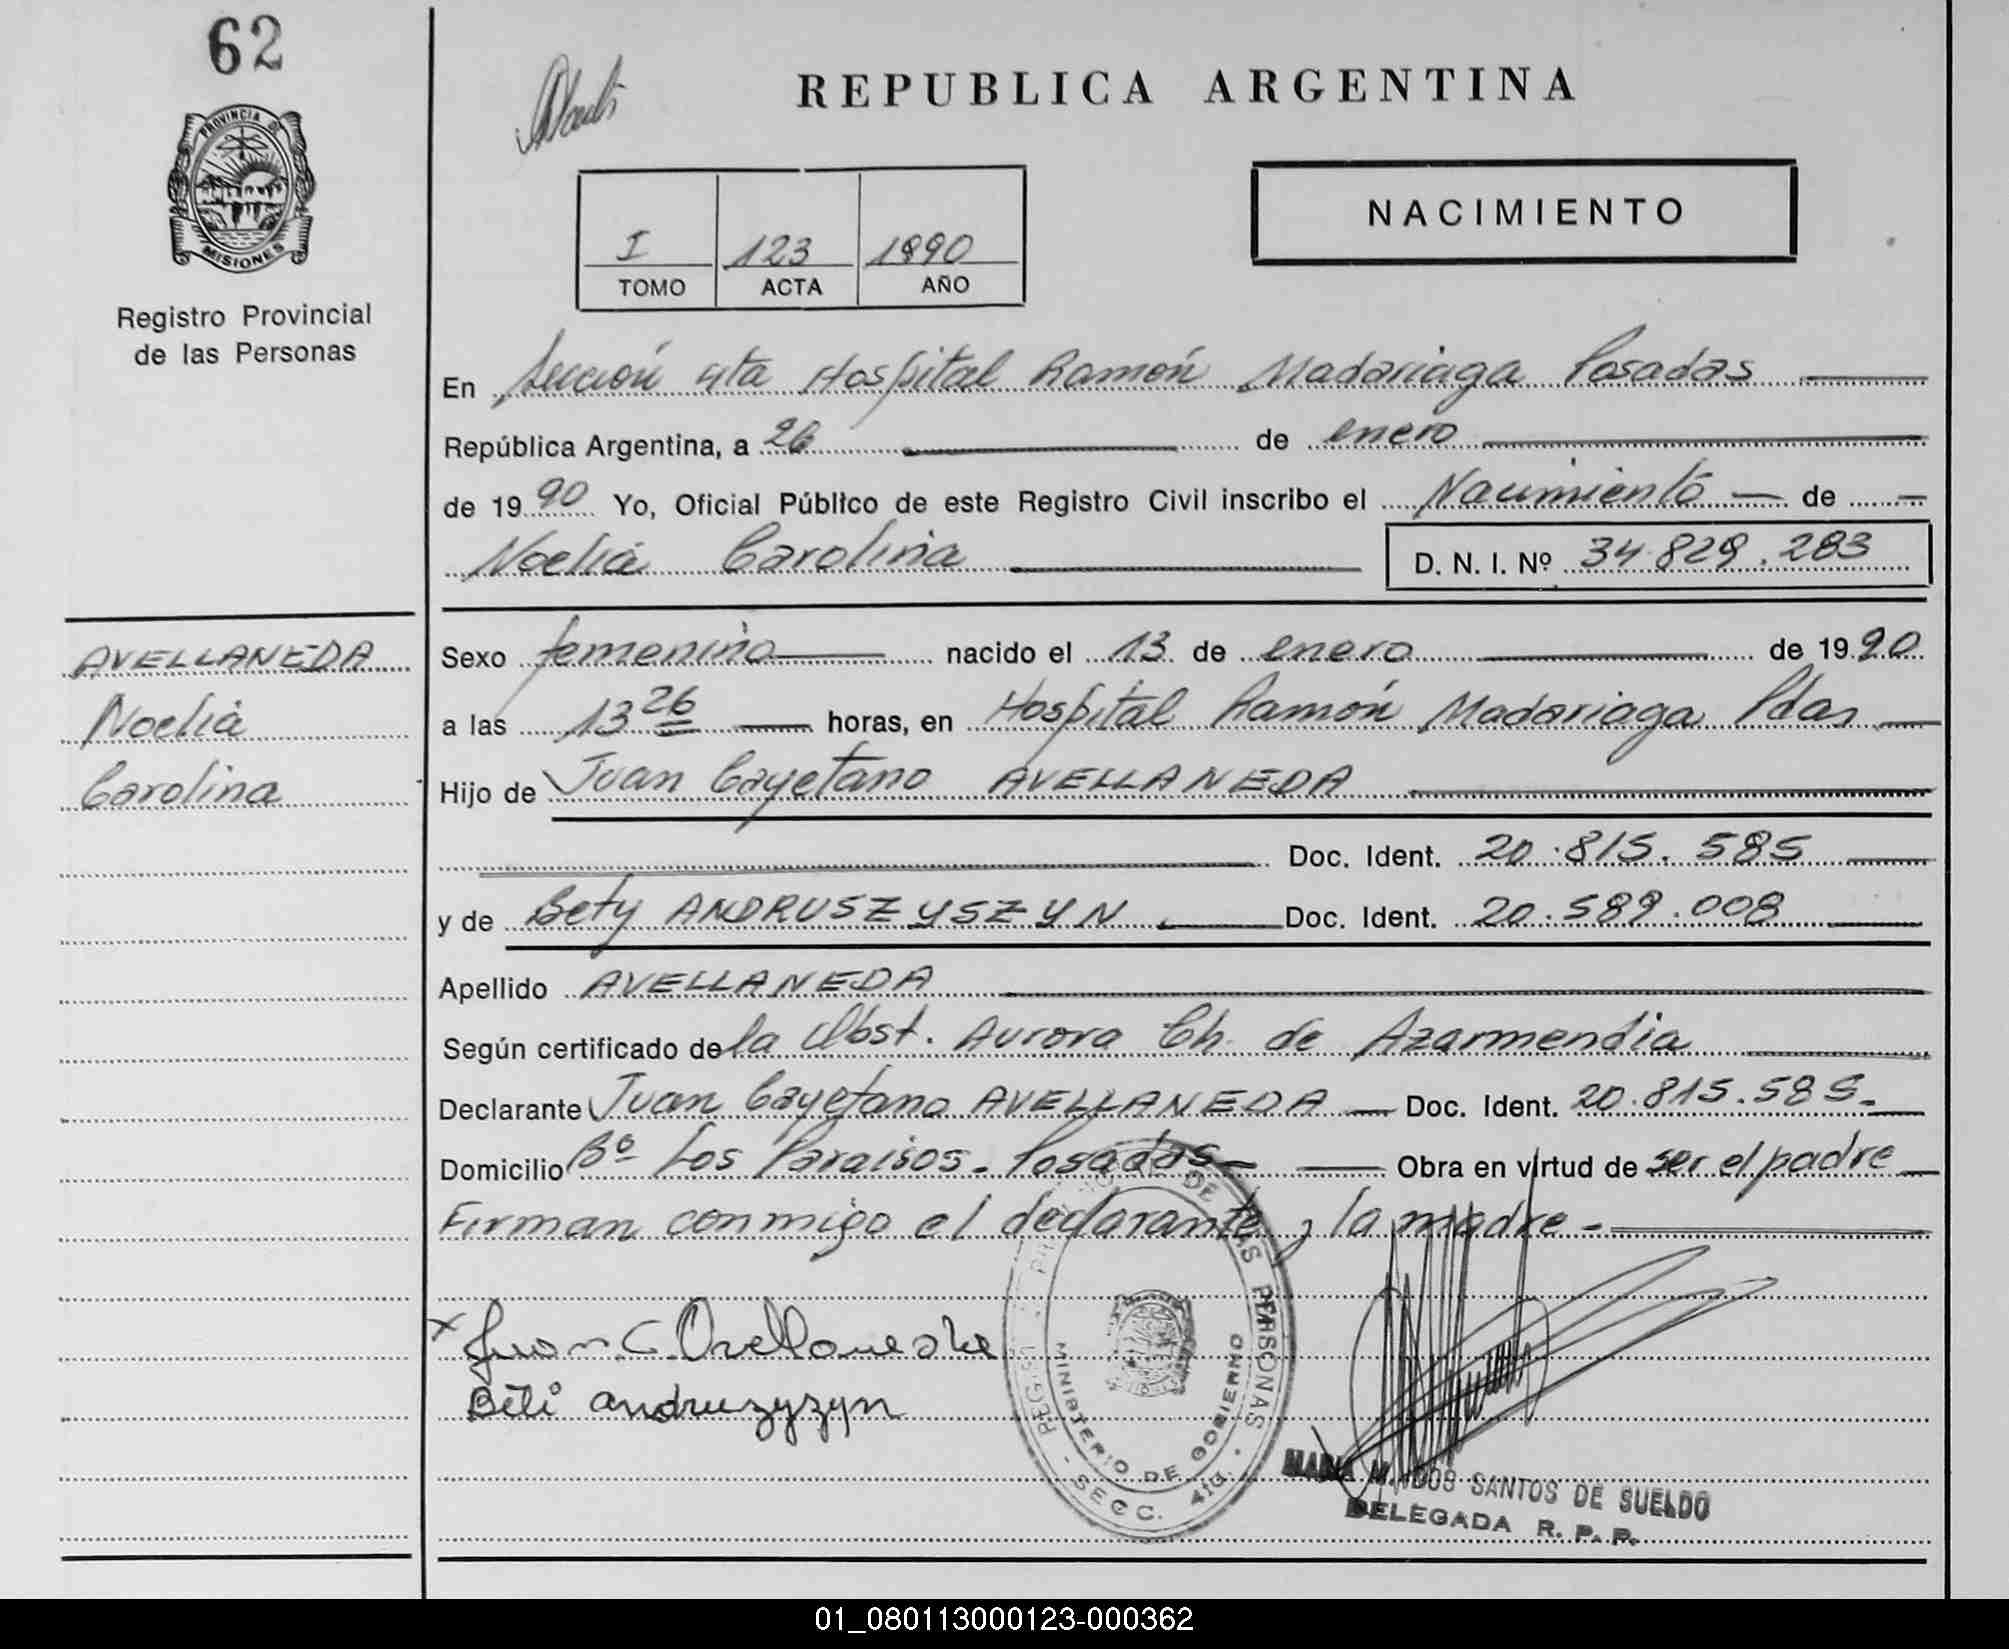 62
PROVINCIA DE
MISIONES
Registro Provincial
de las Personas
REPUBLICA ARGENTINA
NACIMIENTO
I 123 1990
TOMO ACTA AÑO
En Sección 4ta Hospital Ramón Madariaga Posadas
República Argentina, a 26 de enero
de 1990 Yo, Oficial Público de este Registro Civil inscribo el Nacimiento de
Noelia Carolina D. N. I. Nº 34.829.283
AVELLANEDA
Noelia
Carolina
Sexo femenino nacido el 13 de enero de 1990
a las 13 26 horas, en Hospital Ramón Madariaga Pdas
Hijo de Juan Cayetano AVELLANEDA
Doc. Ident. 20.815.585
y de Bety ANDRUSZYSZYN Doc. Ident. 20.589.008
Apellido AVELLANEDA
Según certificado de la Obst. Aurora Ch. de Azarmendia
Declarante Juan Cayetano AVELLANEDA Doc. Ident. 20.815.585.
Domicilio Bº Los Paraisos - Posadas Obra en virtud de ser el padre
Firman conmigo el declarante y la madre -
x Juan C. Avellaneda
Beti andruzyzyn
DE LAS PERSONAS
MINISTERIO DE GOBIERNO
SECC. 4ta.
MARIA M. DOS SANTOS DE SUELDO
DELEGADA R. P. P.
01_080113000123-000362